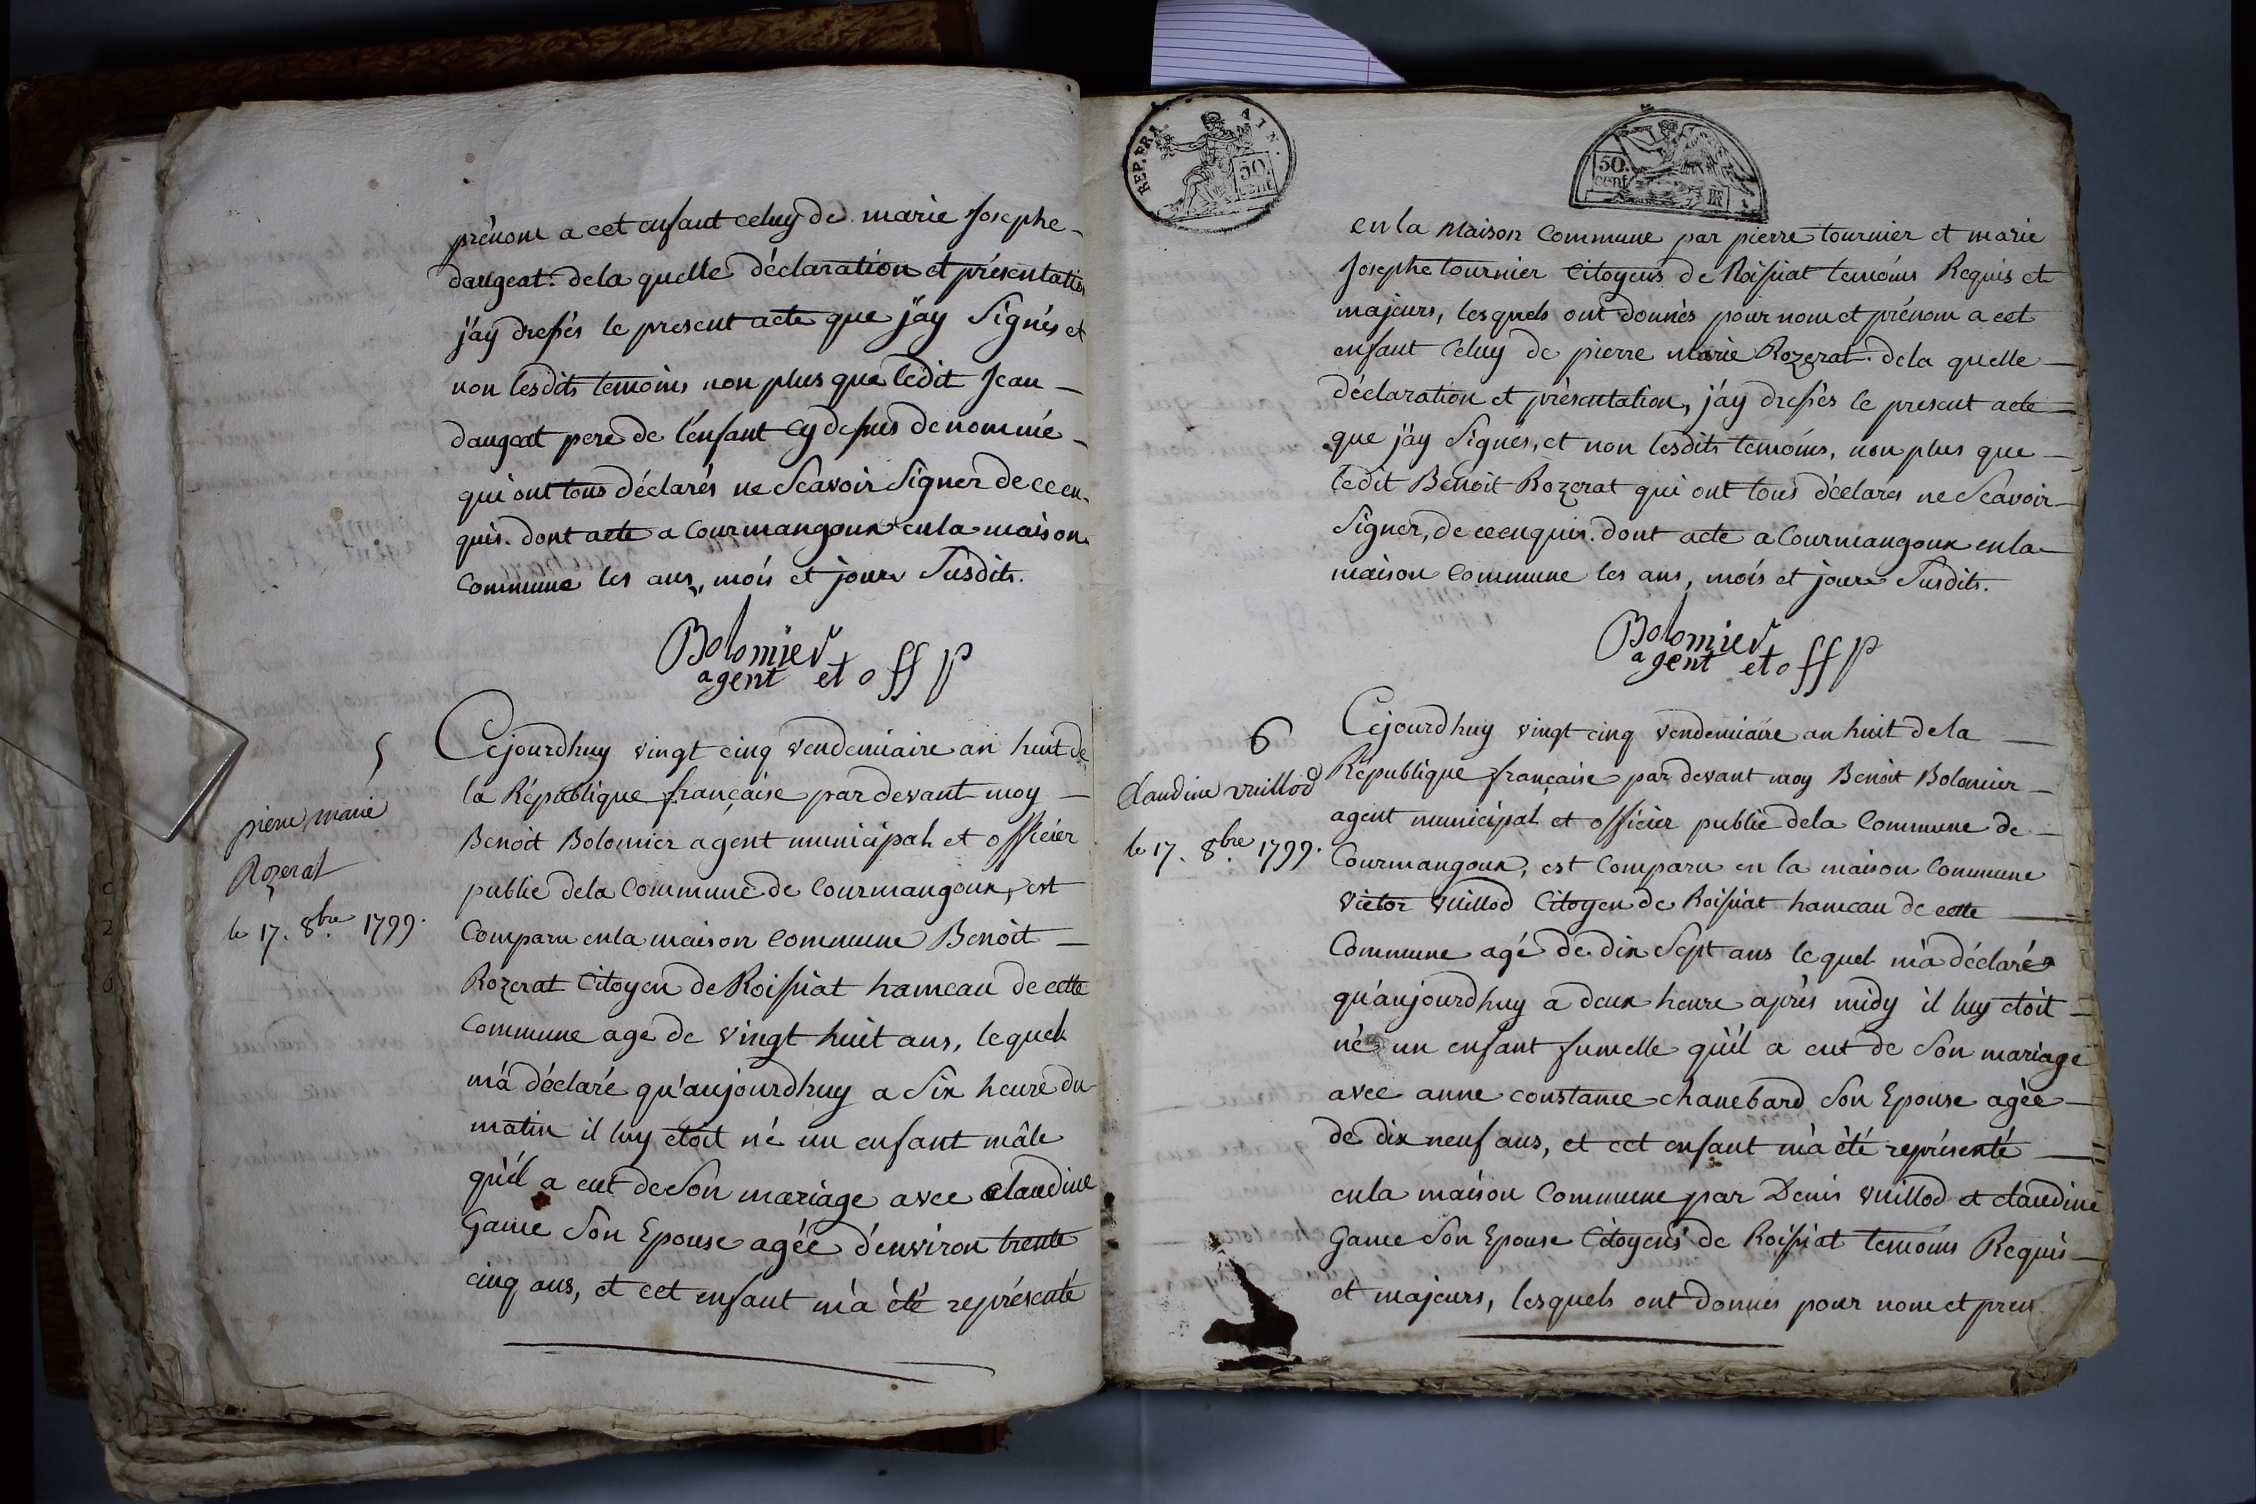 prénom a cet enfant celuy de marie Josephe
daugeat. de la quelle déclaration et présentation
j'ay dressés le present acte que j'ay Signés et
non lesdits temoins non plus que ledit Jean
daugeat pere de l'énfant cy dessus denommé
qui ont tous déclarés ne Scavoir Signer de ce en-
quis. dont acte a Courmangoux en la maison
commune les ans, mois et jours Susdits.
Bolomier
agent et off p
5
pierre marie
Rozerat
le 17. 8bre 1799.
Cejourdhuy vingt cinq vendemiaire an huit de
la République française par devant moy
Benoit Bolomier agent municipal et officier
public dela Commune de Courmangoux, est
Comparu en la maison commune Benoit
Rozerat Citoyen de Roissiat hameau de cette
Commune age de vingt huit ans, lequel
m'a déclaré qu'aujourdhuy a Six heure du
matin il luy etoit né un enfant mâle
qu'il a eut de Son mariage avec Claudine
Game Son Epouse agée d'environ trente
cinq ans, et cet enfant m'a été représenté
REP. FRA. AIN.
50. cent
50. cent
RF
en la Maison Commune par pierre tournier et marie
Josephe tournier Citoyens de Roissiat temoins Requis et
majeurs, lesquels ont donnés pour nom et prénom a cet
enfant Celuy de pierre Marie Rozerat. dela quelle
déclaration et présentation, j'ay dressés le present acte
que j'ay Signés, et non lesdits temoins, non plus que
ledit Benoit Rozerat qui ont tous déclarés ne Scavoir
Signer, de ce enquis. dont acte a Courmangoux en la
maison Commune les ans, mois et jours Susdits.
Bolomier
agent et off p
6
Claudine vuillod
le 17. 8bre 1799.
Cejourdhuy vingt cinq vendemiaire an huit de la
République française par devant moy Benoit Bolomier
agent municipal et officier public dela Commune de
Courmangoux, est Comparu en la maison Commune
victor vuillod Citoyen de Roissiat hameau de cette
Commune agé de dix Sept ans lequel m'a déclaré
qu'aujourdhuy a deux heure après midy il luy etoit
né un enfant fumelle qu'il a eut de Son mariage
avec anne constance chanebard Son Epouse agée
de dix neuf ans, et cet enfant m'a été représenté
en la maison Commune par Denis vuillod et claudine
Game Son Epouse Citoyens de Roissiat temoins Requis
et majeurs, lesquels ont donnés pour nom et pren